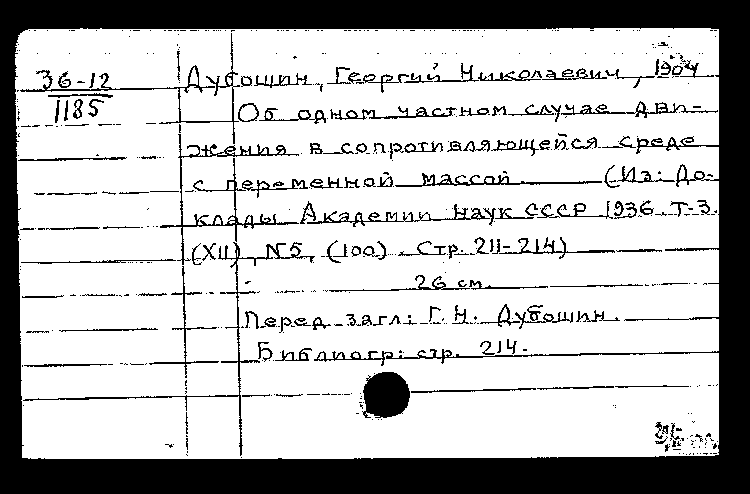 36-12
1185
Дубошин, Георгий Николаевич, 1904
Об одном частном случае дви-
жения в сопротивляющейся среде
с переменной массой. (Из: До-
клады Академии наук СССР 1936. Т-3.
(XII), N5, (100). Стр. 211-214)
26 см.
Перед загл: Г.Н. Дубошин.
Библиогр: стр. 214.